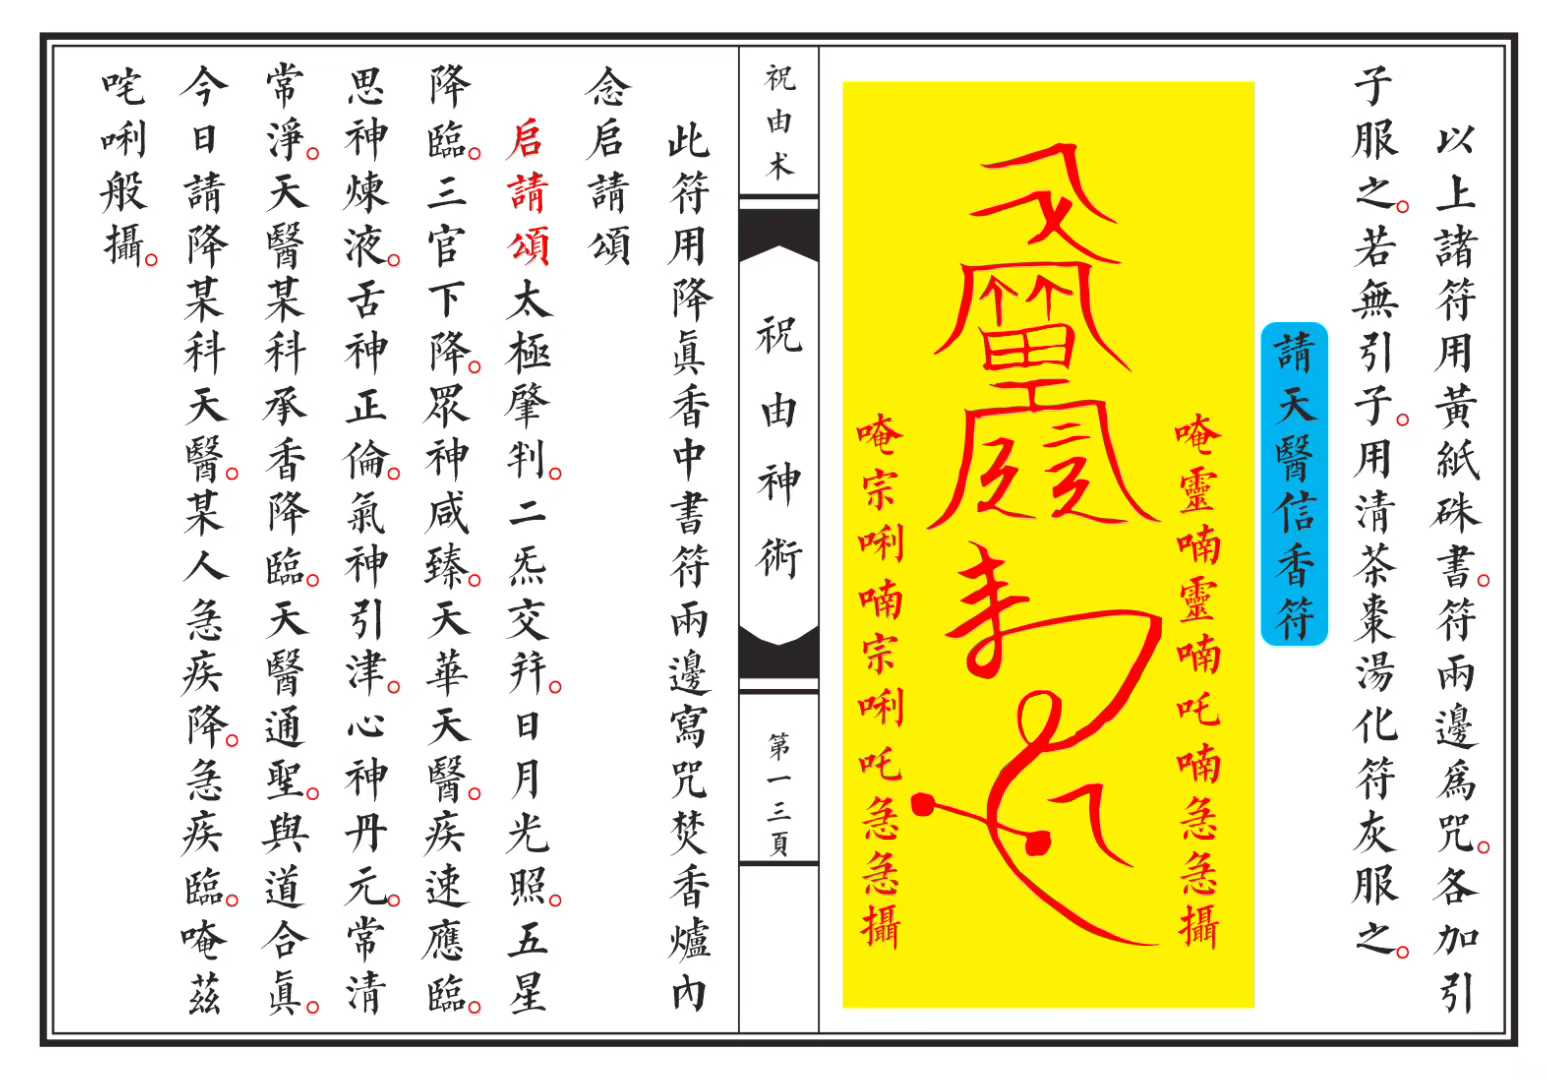 以上諸符用黃紙硃書。符兩邊爲咒。各加引
子服之。若無引子。用清茶棗湯化符灰服之。
請天醫信香符
唵靈喃靈喃吒喃急急攝
唵宗唎喃宗唎吒急急攝
祝由术
祝由神術
第一三頁
此符用降眞香中書符兩邊寫咒焚香爐內
念启請頌
启請頌太極肇判。二炁交并。日月光照。五星
降臨。三官下降。眾神咸臻。天華天醫。疾速應臨。
思神煉液。舌神正倫。氣神引津。心神丹元。常清
常淨。天醫某科承香降臨。天醫通聖。與道合眞。
今日請降某科天醫。某人急疾降。急疾臨。唵茲
咤唎般攝。